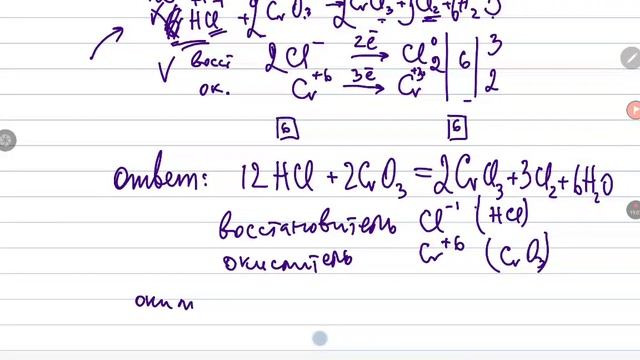 HCl + 2CrO₃ → 2CrCl₃ + 3Cl₂ + 6H₂O
восст 2Cl⁻ 2ē → Cl₂⁰ | 6 | 3
ок. Cr⁺⁶ 3ē → Cr⁺³ | | 2
6 6
Ответ: 12HCl + 2CrO₃ = 2CrCl₃ + 3Cl₂ + 6H₂O
восстановитель Cl⁻¹ (HCl)
окислитель Cr⁺⁶ (CrO₃)